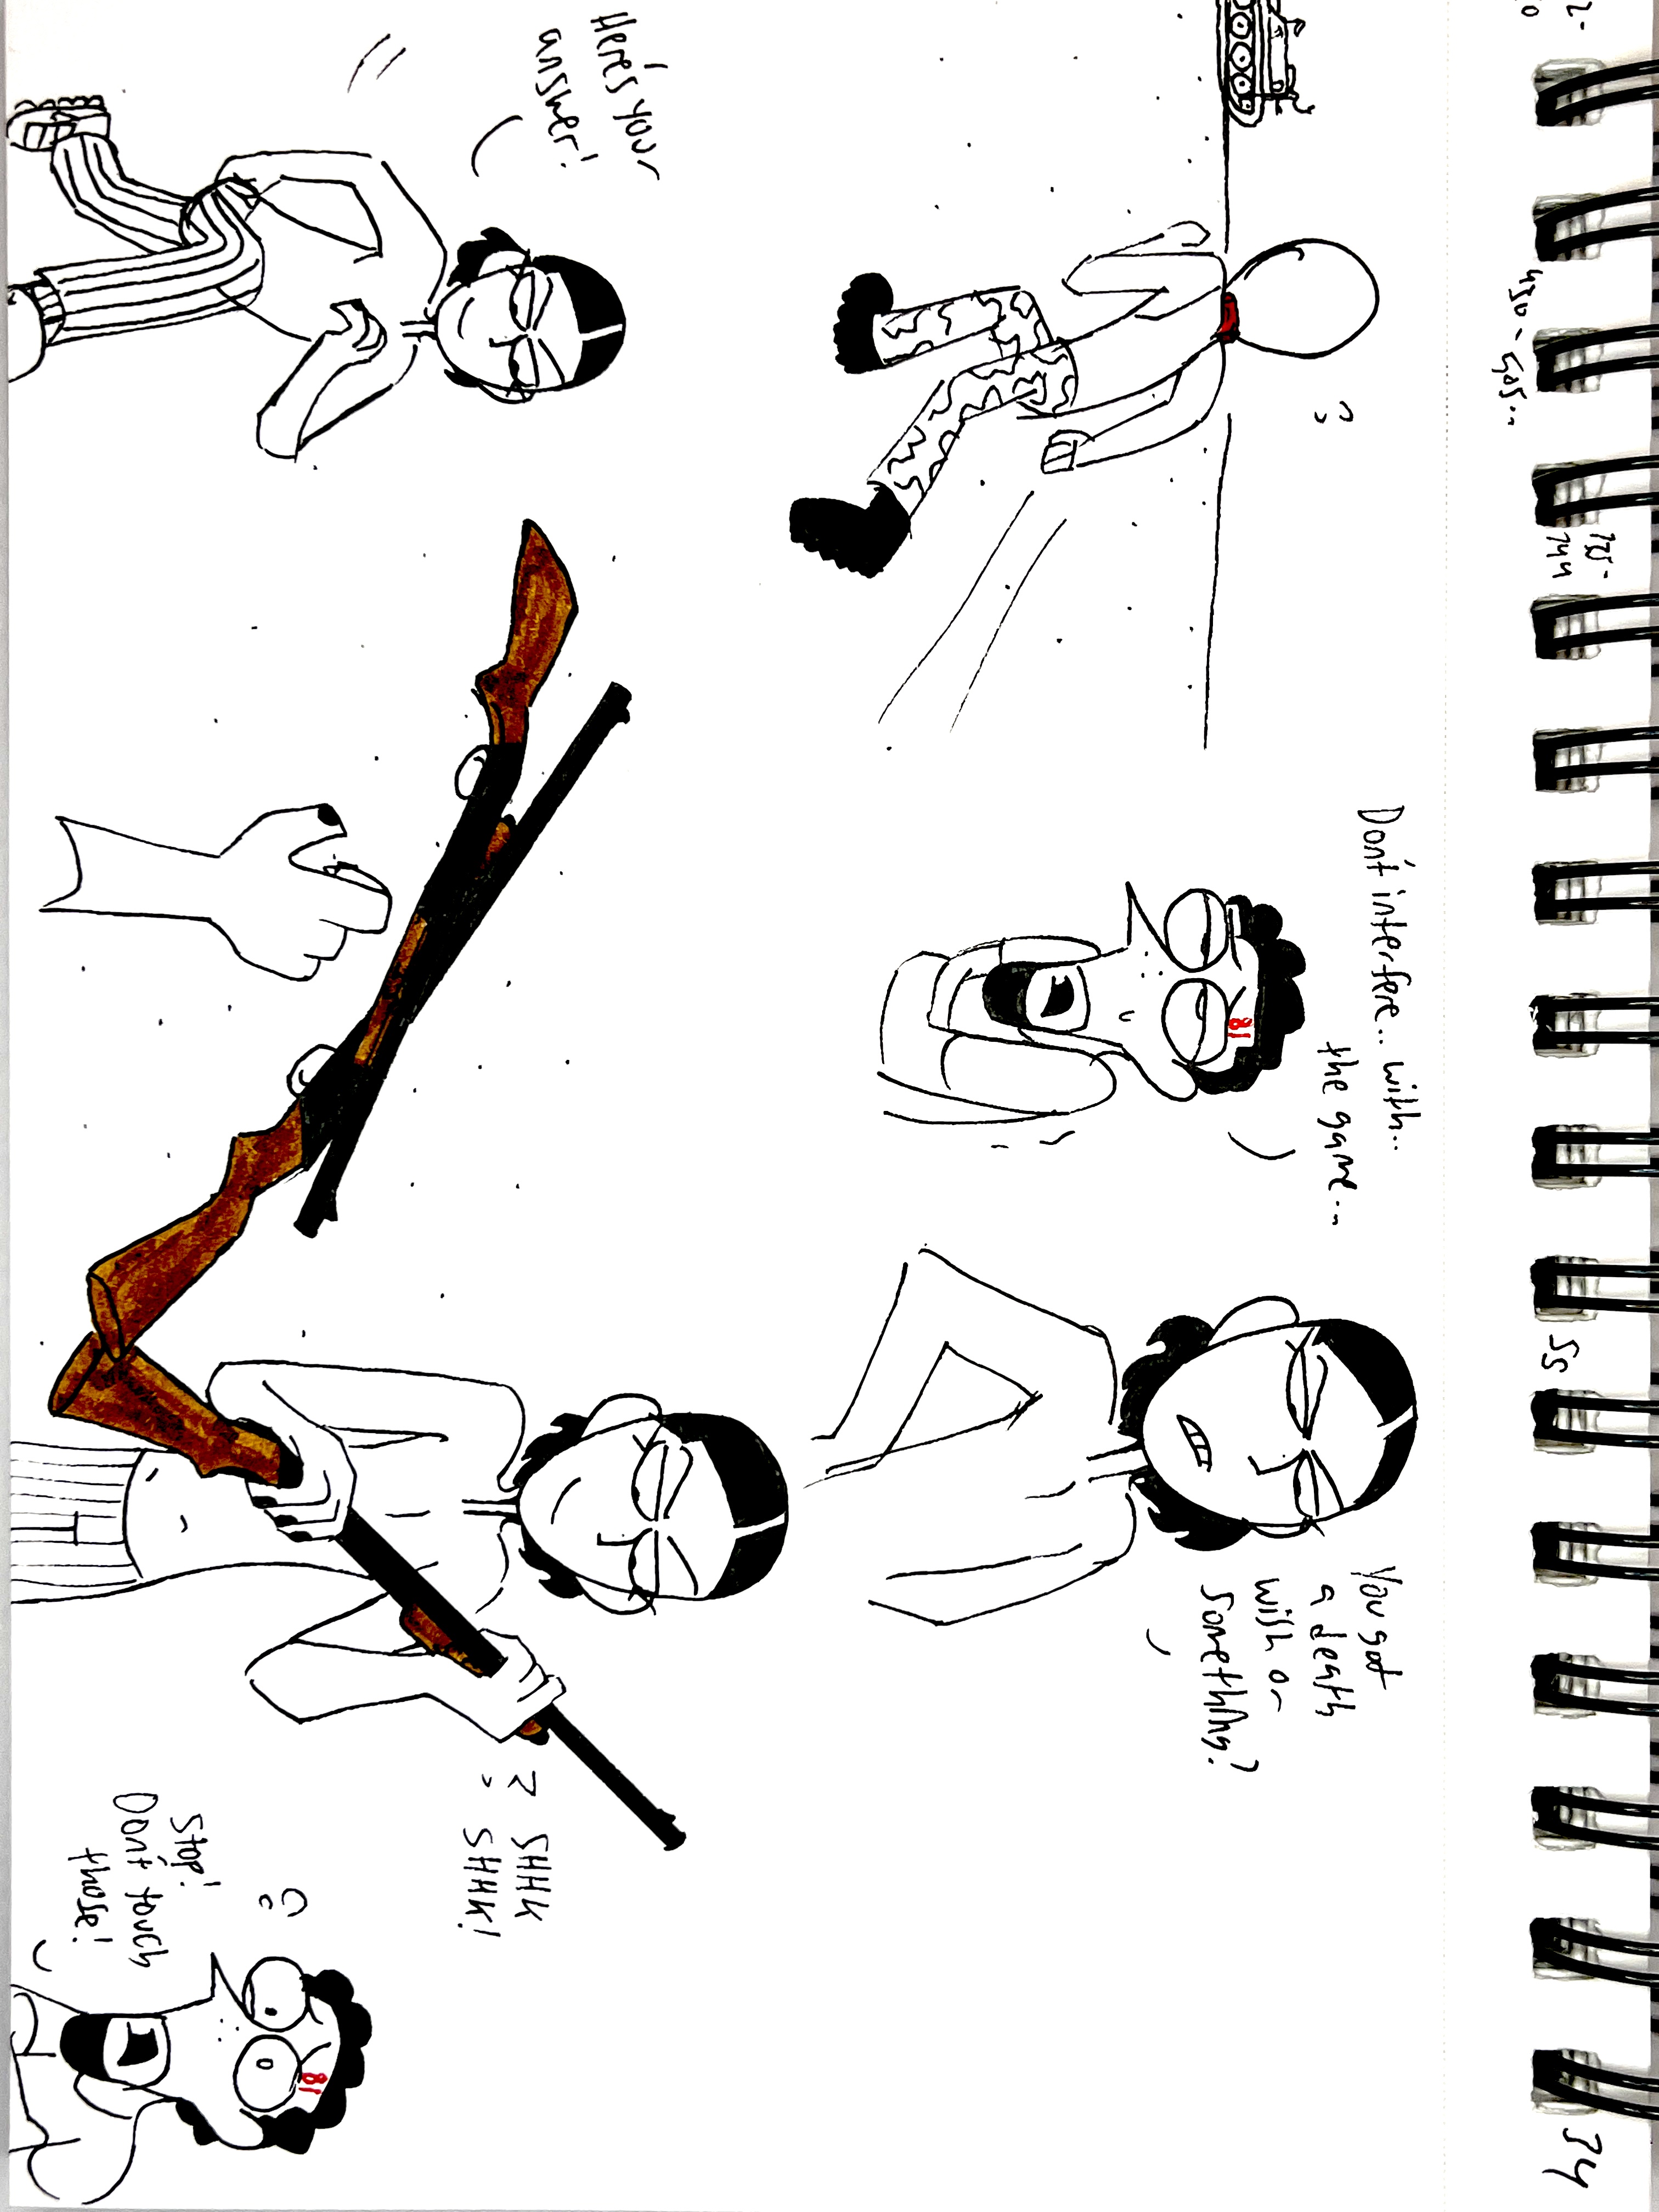 2-
0
430 - 505..
725-
744
55
34
Don't interfere.. with..
the game...
81
You got
a death
wish or
something?
Here's your
answer!
SHHK
SHHK!
81
Stop!
Don't touch
those!